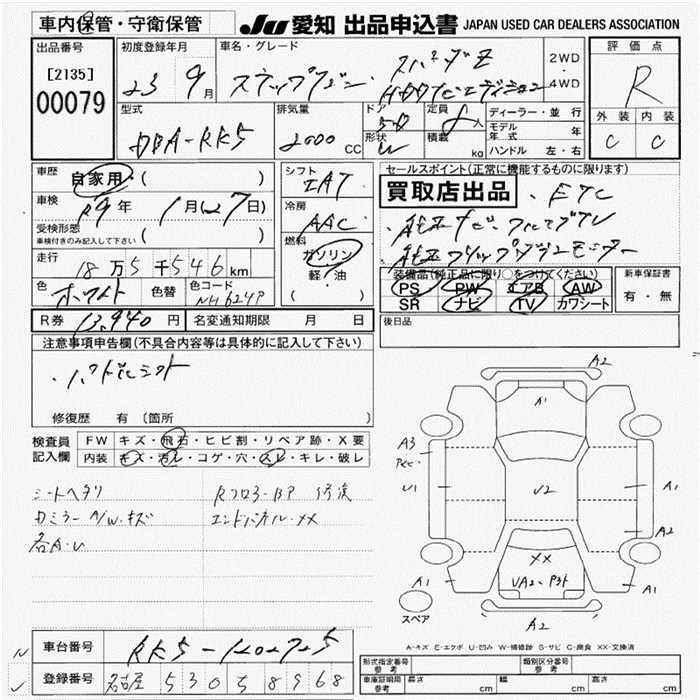 車内保管・守衛保管
JU 愛知 出品申込書 JAPAN USED CAR DEALERS ASSOCIATION
出品番号
[2135]
00079
初度登録年月
23 9月
車名・グレード
ステップワゴン スパーダZ
HDDナビエディション
2WD
・
4WD
評価点
R
外装 内装
C C
型式
DBA-RK5
排気量
2000 CC
ドア
5D
形状
W
定員
8人
積載
kg
ディーラー・並行
モデル年式 年
ハンドル 左・右
車歴
自家用・( )
車検
R9年 1月(27日)
受検形態
車検付きのみ記入して下さい ( )
走行
18万5千546km
色
ホワイト
色替
色コード
NH624P
シフト
IAT
冷房
AAC
燃料
ガソリン
軽・油
( )
セールスポイント(正常に機能するものに限ります)
買取店出品
・ETC
・純正ナビ・フルセグTV
・純正フリップダウンモニター
装備品(純正品に限り○をつけてください)
PS PW エアB AW
SR ナビ TV カワシート
新車保証書
有・無
R券 13,940円
名変通知期限 月 日
後日品
注意事項申告欄(不具合内容等は具体的に記入して下さい)
・パドルシフト
修復歴 有 〔箇所 〕
検査員記入欄
FW キズ・飛石・ヒビ割・リペア跡・X要
内装 キズ・汚レ・コゲ・穴・スレ・キレ・破レ
シートヘタリ
Rフロアー・BP 修復
カミラー A/W・キズ
エンドパネル・XX
各A・U
A2
A1
A3
U1
U2
A1
A2
XX
UA2・
A1
A1
A2
スペア
A-キズ E-エクボ U-凹み W-補修跡 S-サビ C-腐食 XX-交換済
車台番号
RK5-1202725
登録番号
名古屋 530 5 8968
形式指定番号
参考
類別区分番号
参考
車庫証明期
参考
長さ cm
幅 cm
高さ cm